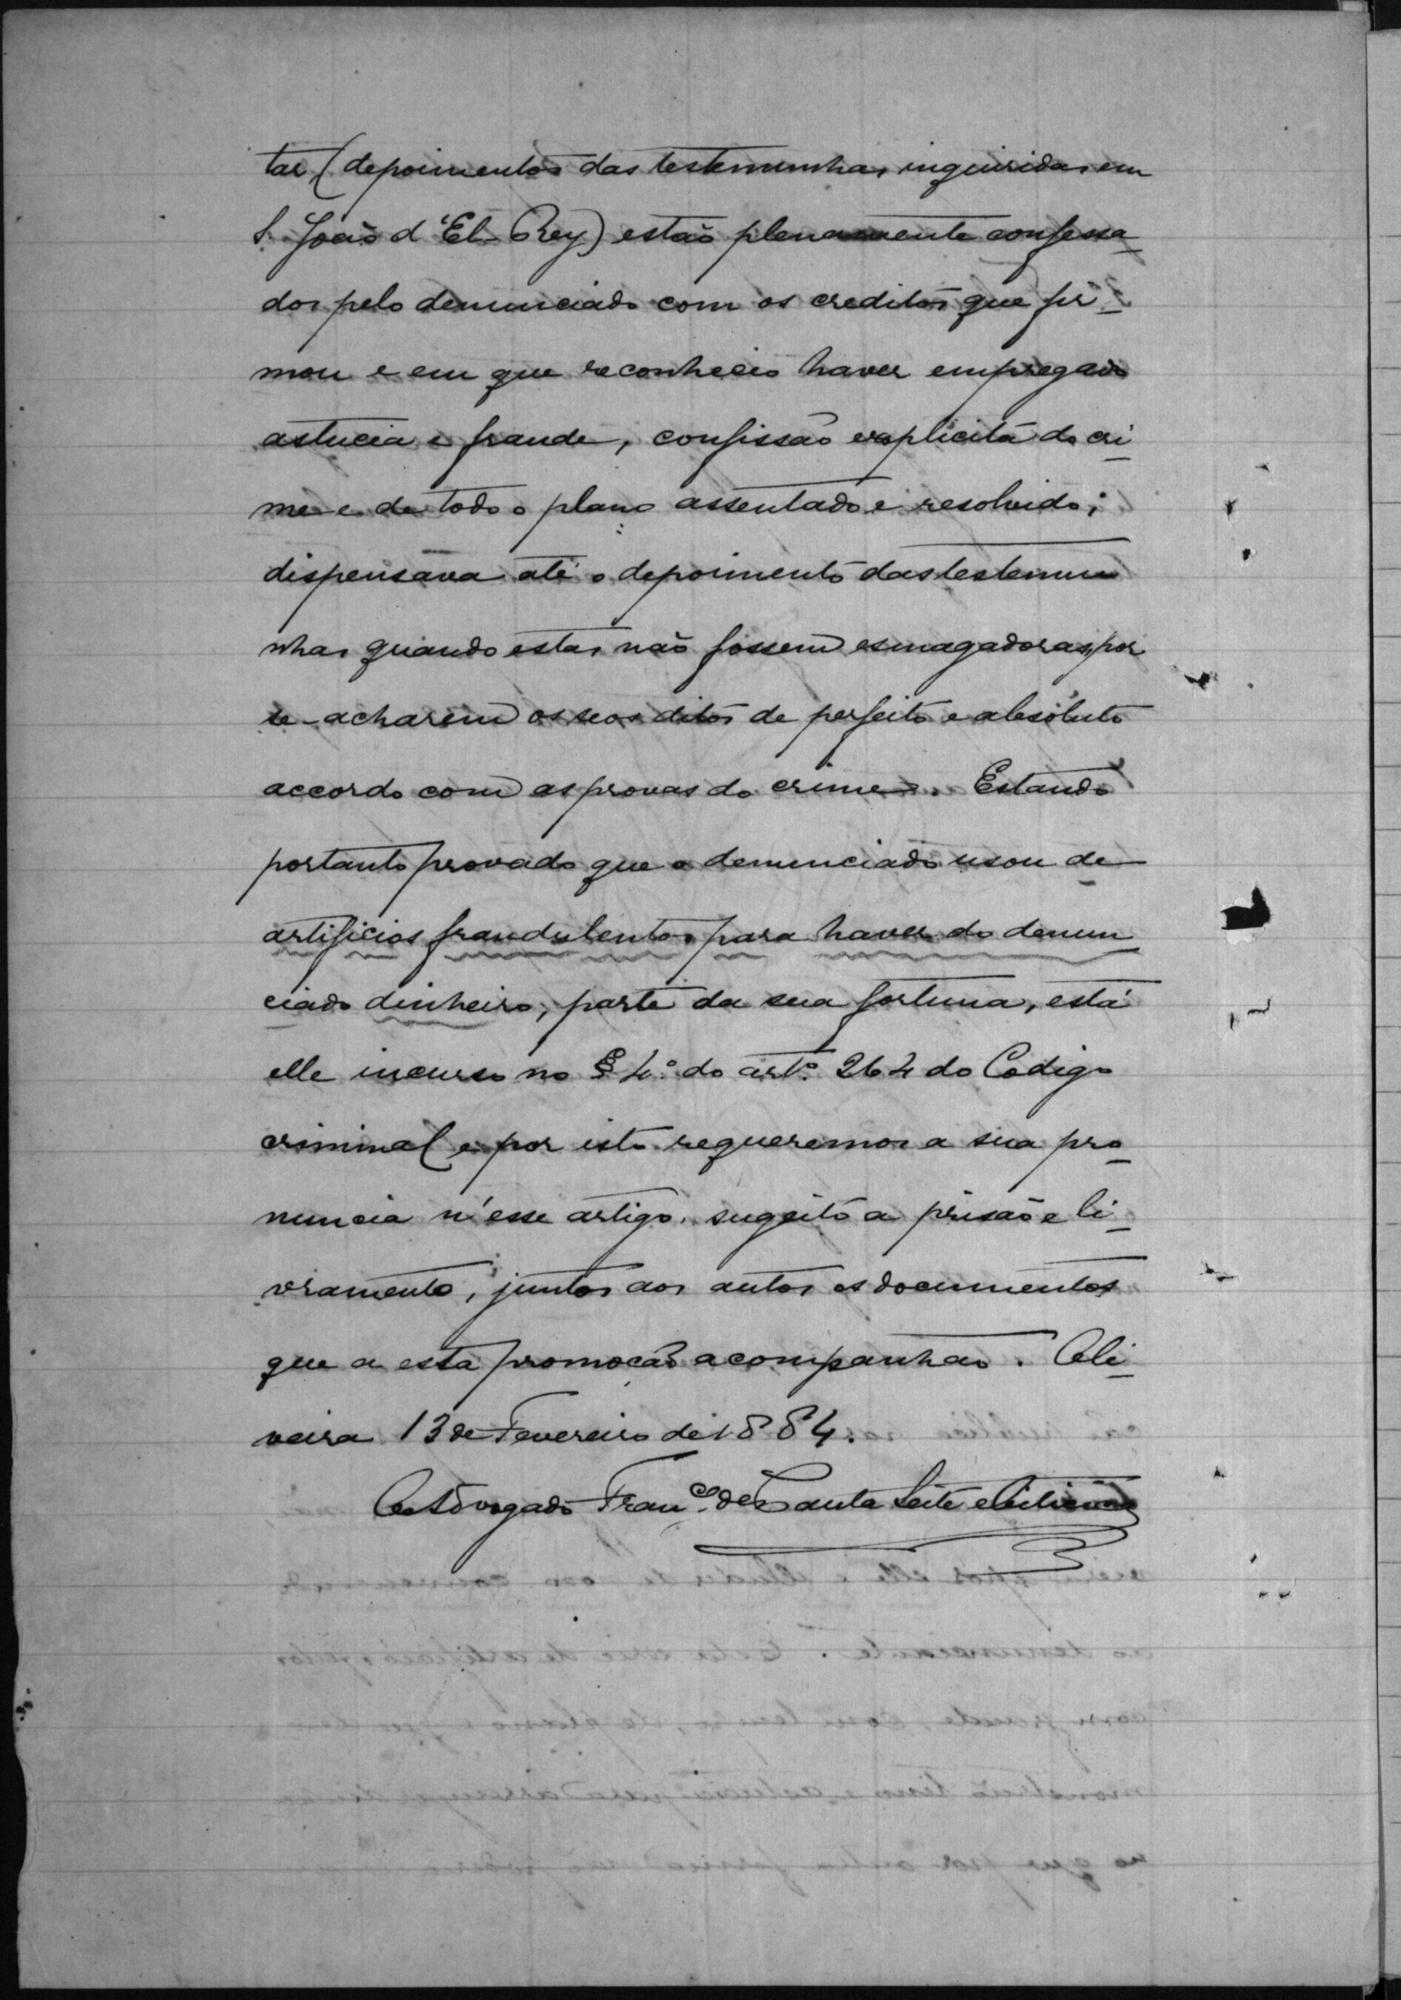 tar (depoimentos das testemunhas inquiridas em
S. João d'El-Rey) estão plenamente confessa-
dos pelo denunciado com os creditos que fir-
mou e em que reconheceo haver empregado
astucia e fraude, confissão explicita do cri-
me e de todo o plano assentado e resolvido;
dispensava até o depoimento das testemu
nhas quando estas não fossem esmagadoras, por
se acharem os seos ditos de perfeito e absoluto
accordo com as provas do crime. Estando
portanto provado que o denunciado usou de
artificios fraudulentos para haver do denun
ciado dinheiro, parte da sua fortuna, está
elle incurso no § 4.º do art.º 264 do Codigo
criminal e por isto requeremos a sua pro-
nuncia n'esse artigo, sugeito a prisão e li-
vramento, juntos aos autos os documentos
que a esta promoção acompanhão. Oli-
veira 13 de Fevereiro de 1884.
O Advogado Fran.co de Paula Leite e Oiticica